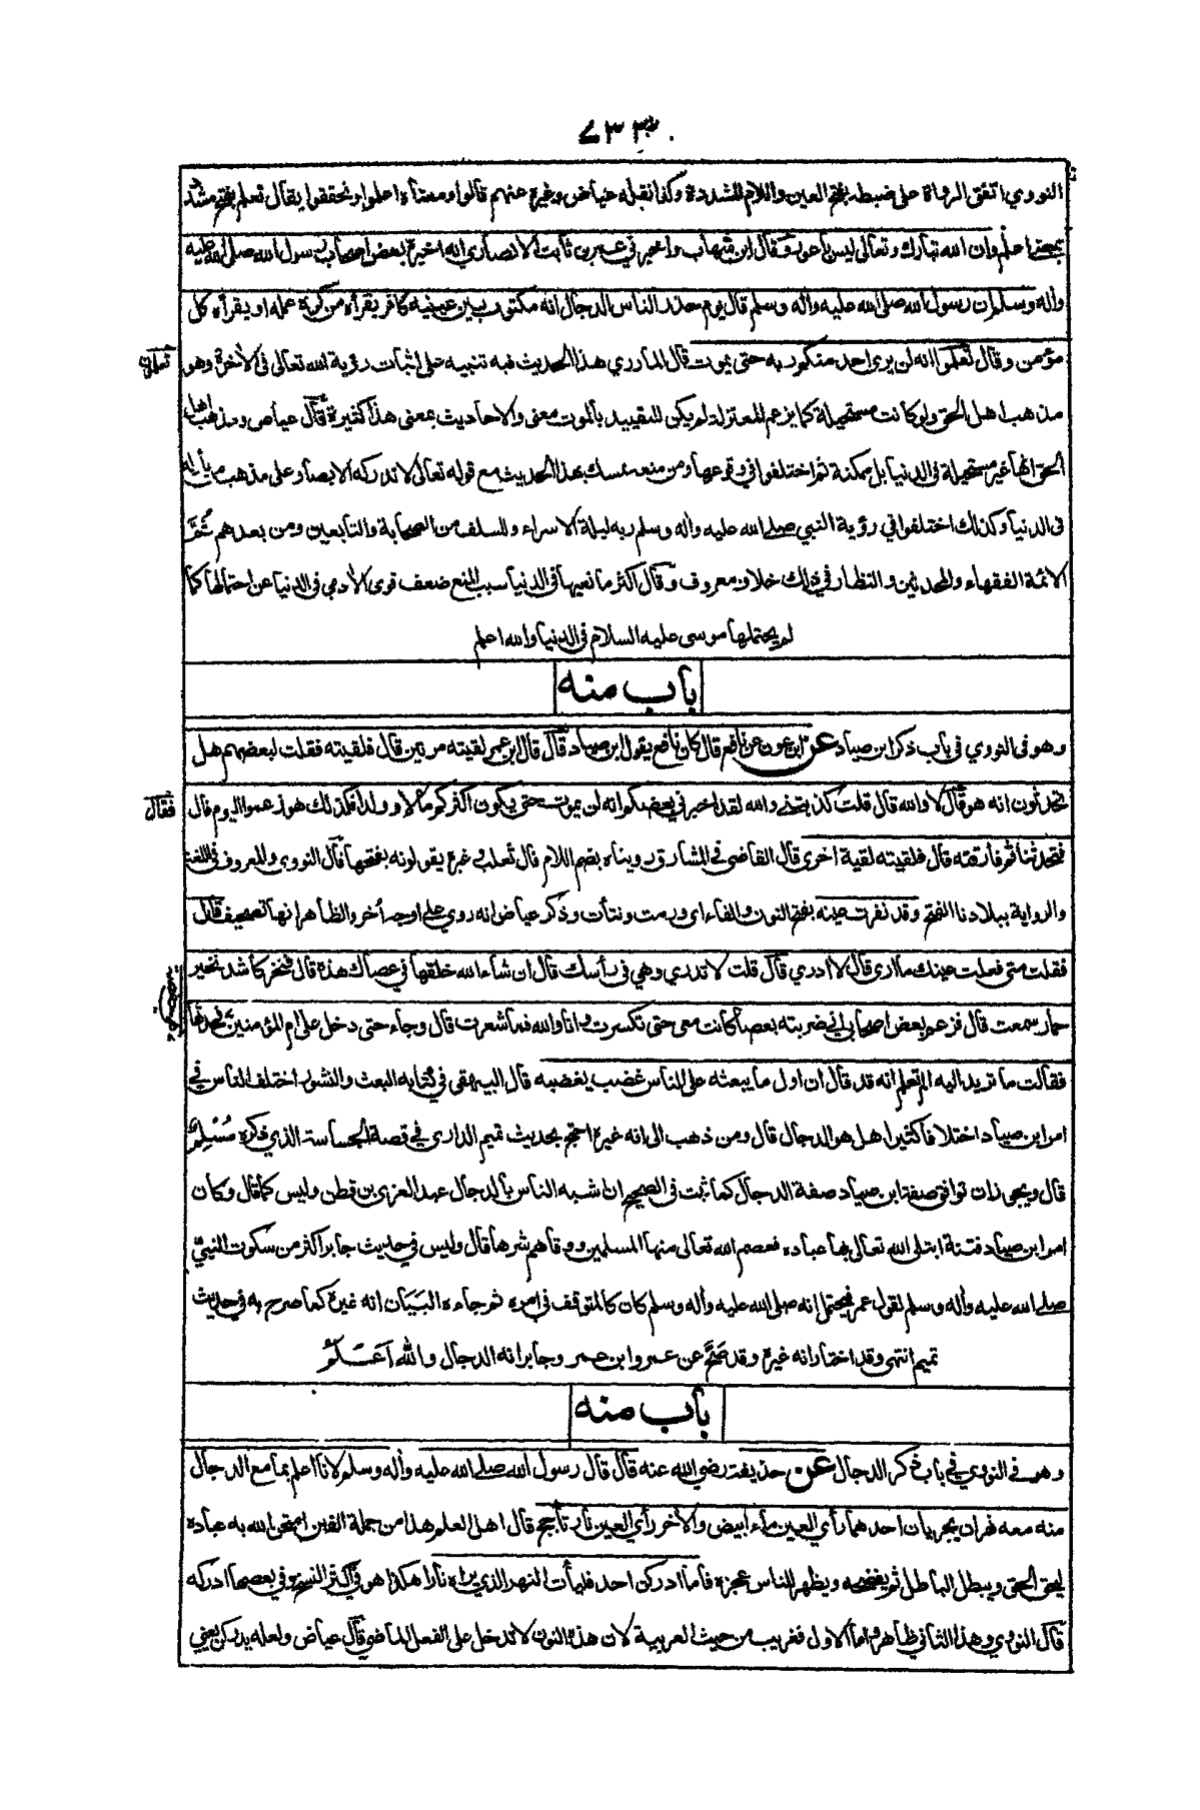 ٧٣٣
النووي اتفق الرواة على ضبطه بفتح العين واللام المشددة وكذا نقله عياض وغيره عنهم قالوا ومعناه اعلموا وتحققوا يقال تعلم بفتح مشدد
بمعنى اعلم وان الله تبارك وتعالى ليس باعور وقال ابن شهاب واخبرني عمر بن ثابت الانصاري انه اخبره بعض اصحاب رسول الله صلى الله عليه
واله وسلم ان رسول الله صلى الله عليه واله وسلم قال يوم حذر الناس الدجال انه مكتوب بين عينيه كافر يقرأه من كره عمله او يقرأه كل
مؤمن وقال تعلموا انه لن يرى احد منكم ربه حتى يموت قال المازري هذا الحديث فيه تنبيه على اثبات رؤية الله تعالى في الأخرة وهو
مذهب اهل الحق ولو كانت مستحيلة كما يزعم المعتزلة لم يكن للتقييد بالموت معنى والاحاديث بمعنى هذا كثيرة قال عياض ومذهب اهل
الحق انها غير مستحيلة في الدنيا بل ممكنة ثم اختلفوا في وقوعها ومن منعه تمسك بهذا الحديث مع قوله تعالى لا تدركه الابصار وعلى مذهب من تأوله
في الدنيا وكذلك اختلفوا في رؤية النبي صلى الله عليه واله وسلم ربه ليلة الاسراء وللسلف من الصحابة والتابعين ومن بعدهم ثم
الائمة الفقهاء والمحدثين والنظار في ذلك خلاف معروف وقال اكثر مانعيها في الدنيا سبب المنع ضعف قوى الأدمي في الدنيا عن احتمالها كما
لم يحتملها موسى عليه السلام في الدنيا والله اعلم
باب منه
وهو في النووي في باب ذكر ابن صياد عن ابن عون عن نافع قال كان نافع يقول ابن صياد قال قال ابن عمر لقيته مرتين قال فلقيته فقلت لبعضهم هل
تحدثون انه هو قال لا والله قال قلت كذبتني والله لقد اخبرني بعضكم انه لن يموت حتى يكون اكثركم مالا وولدا فكذلك هو زعموا اليوم قال فقال
فتحدثنا ثم فارقته قال فلقيته لقية اخرى قال القاضي في المشارق رويناه بضم اللام قال ثعلب وغيره يقولونه بفتحها قال النووي والمعروف في اللغة
والرواية ببلادنا الفتح وقد نفرت عينه بفتح النون والفاء اي ورمت ونتأت وذكر عياض انه روي على اوجه أخر والظاهر انها تصحيف قال
فقلت متى فعلت عينك ما ارى قال لا ادري قال قلت لا تدري وهي في رأسك قال ان شاء الله خلقها في عصاك هذه قال فنخر كاشد نخير
حمار سمعت قال فزعم بعض اصحابي اني ضربته بعصا كانت معي حتى تكسرت واما انا والله فما شعرت قال وجاء حتى دخل على ام المؤمنين فحدثها
فقالت ما تريد اليه الم تعلم انه قد قال ان اول ما يبعثه على الناس غضب يغضبه قال البيهقي في كتابه البعث والنشور اختلف الناس في
امر ابن صياد اختلافا كثيرا هل هو الدجال قال ومن ذهب الى انه غيره احتج بحديث تميم الداري في قصة الجساسة الذي ذكره مسلم
قال ويجوز ان توافق صفة ابن صياد صفة الدجال كما ثبت في الصحيح ان اشبه الناس بالدجال عبد العزى بن قطن وليس كما قال وكان
امر ابن صياد فتنة ابتلى الله تعالى بها عباده فعصم الله تعالى منها المسلمين ووقاهم شرها قال وليس في حديث جابر اكثر من سكوت النبي
صلى الله عليه واله وسلم لقول عمر فيحتمل انه صلى الله عليه واله وسلم كان كالمتوقف في امره ثم جاءه البيان انه غيره كما صرح به في حديث
تميم انتهى وقد اختار انه غيره وقد صح عن عمر وابن عمر وجابر انه الدجال والله اعلم
باب منه
وهو في النووي في باب ذكر الدجال عن حذيفة رضي الله عنه قال قال رسول الله صلى الله عليه واله وسلم لانا اعلم بما مع الدجال
منه معه نهران يجريان احدهما رأي العين ماء ابيض والأخر رأي العين نار تأجج قال اهل العلم هذا من جملة الفتن امتحن الله به عباده
ليحق الحق ويبطل الباطل ثم يفضحه ويظهر للناس عجزه فاما ادركن احد فليأت النهر الذي يراه نارا هكذا هو في اكثر النسخ وفي بعضها ادركه
قال النووي وهذا الثاني ظاهر واما الاول فغريب من حيث العربية لان هذه النون لا تدخل على الفعل الماضي قال عياض ولعله يدركن يعني